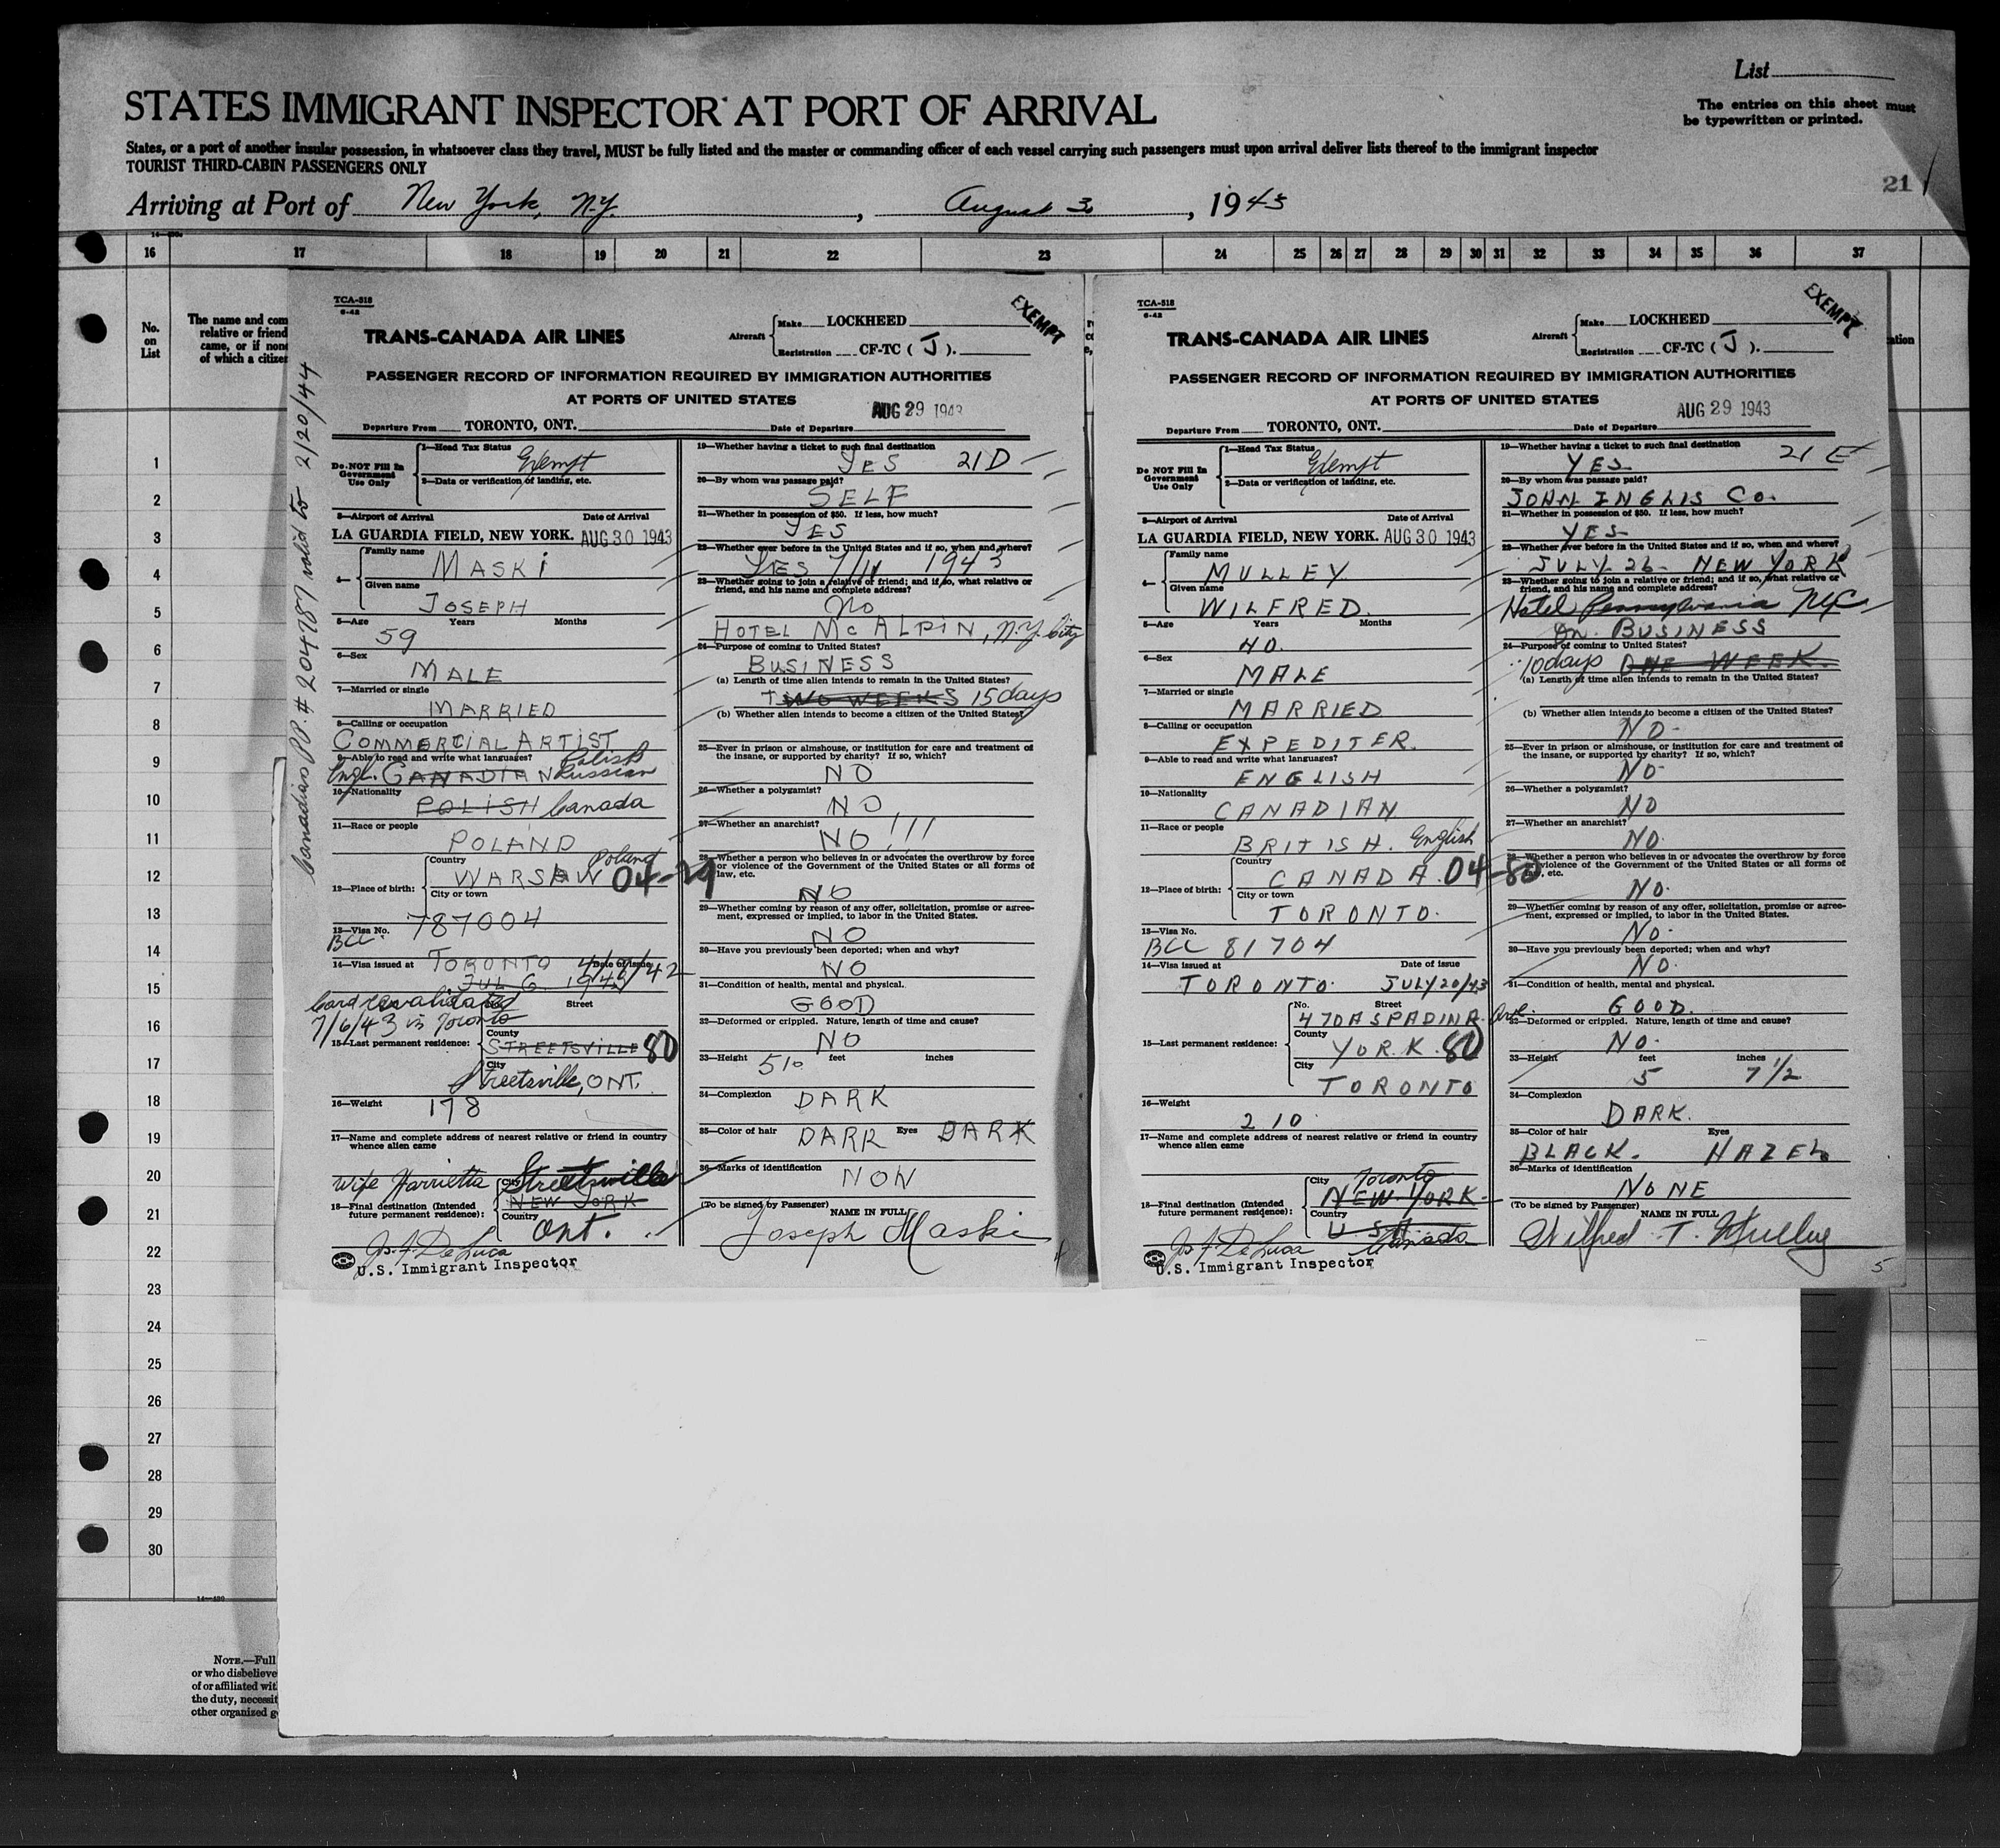 List
STATES IMMIGRANT INSPECTOR AT PORT OF ARRIVAL
The entries on this sheet must
be typewritten or printed.
States, or a port of another insular possession, in whatsoever class they travel, MUST be fully listed and the master or commanding officer of each vessel carrying such passengers must upon arrival deliver lists thereof to the immigrant inspector
TOURIST THIRD-CABIN PASSENGERS ONLY
21
Arriving at Port of New York, N.Y., August 30, 1943
16 17 18 19 20 21 22 23 24 25 26 27 28 29 30 31 32 33 34 35 36 37
No.
on
List
The name and com
relative or friend
came, or if none
of which a citizen
1
2
3
4
5
6
7
8
9
10
11
12
13
14
15
16
17
18
19
20
21
22
23
24
25
26
27
28
29
30
NOTE.—Full
or who disbelieve
of or affiliated wit
the duty, necessit
other organized g
Canadian PP. # 204787 valid to 2/20/44
TCA-518
6-42
EXEMPT
TRANS-CANADA AIR LINES
Aircraft Make LOCKHEED
Registration CF-TC ( J ).
PASSENGER RECORD OF INFORMATION REQUIRED BY IMMIGRATION AUTHORITIES
AT PORTS OF UNITED STATES
AUG 29 1943
Departure From TORONTO, ONT. Date of Departure
Do NOT Fill In
Government
Use Only
1—Head Tax Status
Exempt
2—Data or verification of landing, etc.
3—Airport of Arrival Date of Arrival
LA GUARDIA FIELD, NEW YORK. AUG 30 1943
4—
Family name
MASKI
Given name
JOSEPH
5—Age Years Months
59
6—Sex
MALE
7—Married or single
MARRIED
8—Calling or occupation
COMMERCIAL ARTIST
9—Able to read and write what languages? Polish
Engl. CANADIAN Russian
10—Nationality
POLISH Canada
11—Race or people
POLAND
12—Place of birth:
Country Poland
WARSAW 04-79
City or town
13—Visa No. 787004
BCC.
14—Visa issued at TORONTO Date of issue 4/9/42
JUL 6 1943
Card revalidated
7/6/43 in Toronto
Street
15—Last permanent residence:
County
STREETSVILLE 80
City
Streetsville, ONT.
16—Weight
178
17—Name and complete address of nearest relative or friend in country
whence alien came
Wife Harrietta Streetsville
18—Final destination (Intended
future permanent residence):
City
NEW YORK
Country
Ont.
Jos. F. DeLuca
U.S. Immigrant Inspector
19—Whether having a ticket to such final destination
YES 21D
20—By whom was passage paid?
SELF
21—Whether in possession of $50. If less, how much?
YES
22—Whether ever before in the United States and if so, when and where?
YES 7/11 1943
23—Whether going to join a relative or friend; and if so, what relative or
friend, and his name and complete address?
No
HOTEL McALPIN, N.Y. City
24—Purpose of coming to United States?
BUSINESS
(a) Length of time alien intends to remain in the United States?
TWO WEEKS 15 days
(b) Whether alien intends to become a citizen of the United States?
25—Ever in prison or almshouse, or institution for care and treatment of
the insane, or supported by charity? If so, which?
NO
26—Whether a polygamist?
NO
27—Whether an anarchist?
NO!!!
28—Whether a person who believes in or advocates the overthrow by force
or violence of the Government of the United States or all forms of
law, etc.
NO
29—Whether coming by reason of any offer, solicitation, promise or agree-
ment, expressed or implied, to labor in the United States.
NO
30—Have you previously been deported; when and why?
NO
31—Condition of health, mental and physical.
GOOD
32—Deformed or crippled. Nature, length of time and cause?
NO
33—Height 510 feet inches
34—Complexion
DARK
35—Color of hair DARK Eyes DARK
36—Marks of identification
NON
(To be signed by Passenger) NAME IN FULL
Joseph Maski
4
TCA-518
6-42
EXEMPT
TRANS-CANADA AIR LINES
Aircraft Make LOCKHEED
Registration CF-TC ( J ).
PASSENGER RECORD OF INFORMATION REQUIRED BY IMMIGRATION AUTHORITIES
AT PORTS OF UNITED STATES
AUG 29 1943
Departure From TORONTO, ONT. Date of Departure
Do NOT Fill In
Government
Use Only
1—Head Tax Status
Exempt
2—Data or verification of landing, etc.
3—Airport of Arrival Date of Arrival
LA GUARDIA FIELD, NEW YORK. AUG 30 1943
4—
Family name
MULLEY
Given name
WILFRED.
5—Age Years Months
40.
6—Sex
MALE
7—Married or single
MARRIED
8—Calling or occupation
EXPEDITER.
9—Able to read and write what languages?
ENGLISH
10—Nationality
CANADIAN
11—Race or people
BRITISH. English
12—Place of birth:
Country
CANADA. 04-80
City or town
TORONTO.
13—Visa No.
BCC 81704
14—Visa issued at Date of issue
TORONTO. JULY 20/43
15—Last permanent residence:
No. Street
470A SPADINA Ave.
County
YORK. 80
City
TORONTO
16—Weight
210
17—Name and complete address of nearest relative or friend in country
whence alien came
18—Final destination (Intended
future permanent residence):
City Toronto
NEW YORK
Country
U.S.A. Canada
Jos. F. DeLuca
U.S. Immigrant Inspector
19—Whether having a ticket to such final destination
YES 21 E
20—By whom was passage paid?
JOHN INGLIS CO.
21—Whether in possession of $50. If less, how much?
YES
22—Whether ever before in the United States and if so, when and where?
JULY 26 - NEW YORK
23—Whether going to join a relative or friend; and if so, what relative or
friend, and his name and complete address?
Hotel Pennsylvania NYC
ON BUSINESS
24—Purpose of coming to United States?
10 days ONE WEEK.
(a) Length of time alien intends to remain in the United States?
(b) Whether alien intends to become a citizen of the United States?
NO-
25—Ever in prison or almshouse, or institution for care and treatment of
the insane, or supported by charity? If so, which?
NO-
26—Whether a polygamist?
NO
27—Whether an anarchist?
NO.
28—Whether a person who believes in or advocates the overthrow by force
or violence of the Government of the United States or all forms of
law, etc.
NO.
29—Whether coming by reason of any offer, solicitation, promise or agree-
ment, expressed or implied, to labor in the United States.
NO.
30—Have you previously been deported; when and why?
NO.
31—Condition of health, mental and physical.
GOOD.
32—Deformed or crippled. Nature, length of time and cause?
NO.
33—Height feet inches
5 7 1/2
34—Complexion
DARK.
35—Color of hair Eyes
BLACK. HAZEL
36—Marks of identification
NONE
(To be signed by Passenger) NAME IN FULL
Wilfred T. Mulley
5